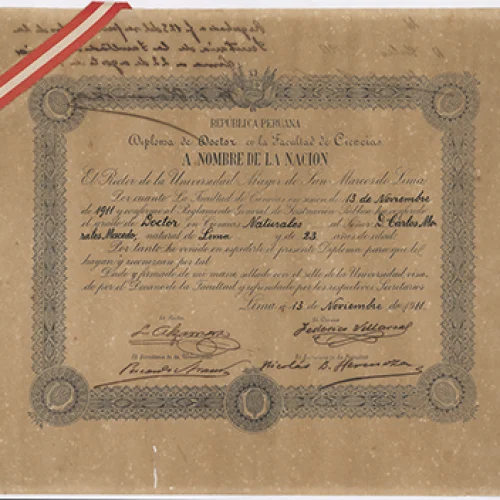 REPUBLICA PERUANA
Diploma de Doctor en la Facultad de Ciencias
A NOMBRE DE LA NACION
El Rector de la Universidad Mayor de San Marcos de Lima
Por cuanto La Facultad de Ciencias en sesion de 13 de Noviembre
de 1911 y conforme al Reglamento General de Instruccion Publica ha conferido
el grado de Doctor en Ciencias Naturales al Señor D. Carlos Mo-
rales Macedo, natural de Lima y de 23 años de edad.
Por tanto ha venido en expedirle el presente Diploma para que lo
hayan y reconozcan por tal.
Dado y firmado de mi mano, sellado con el sello de la Universidad, visa-
do por el Decano de la Facultad y refrendado por los respectivos Secretarios
Lima á 13 de Noviembre de 1911.
El Rector
Federico Villarreal
El Secretario de la Universidad
El Secretario de la Facultad
Nicolás B. Hermoza